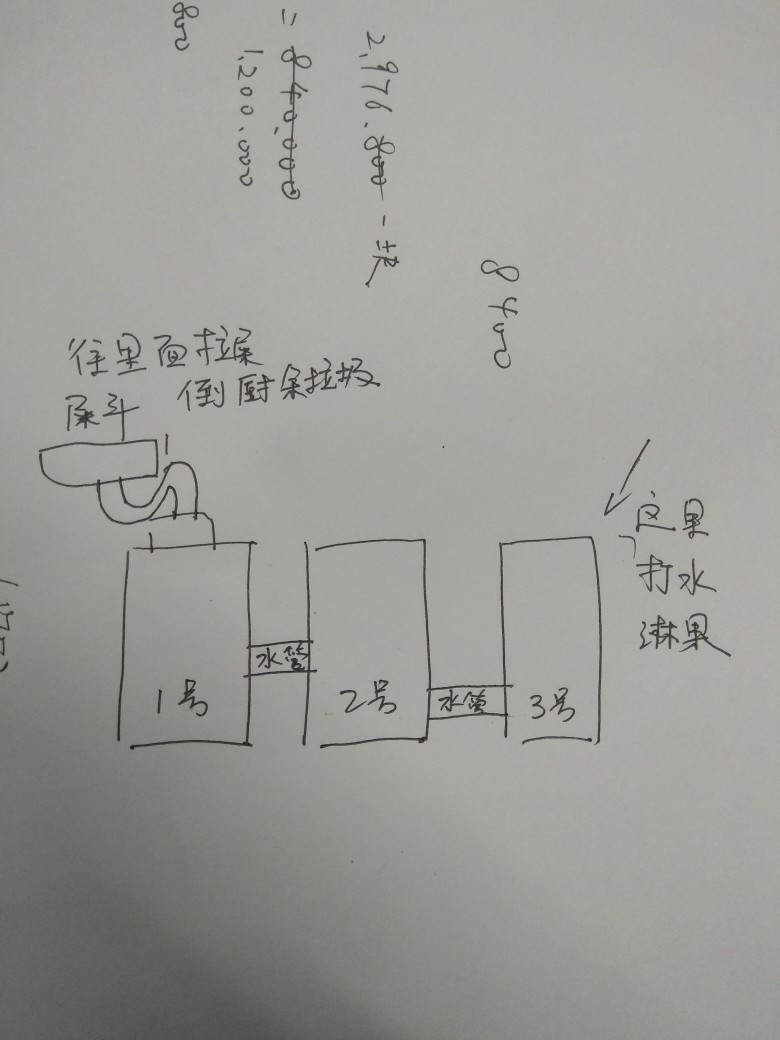 2,976.800 一块
= 840,000
1,200.000
800
8400
往里面拉屎
倒厨余垃圾
屎斗
这里
打水
淋果
水管
水管
1号
2号
3号